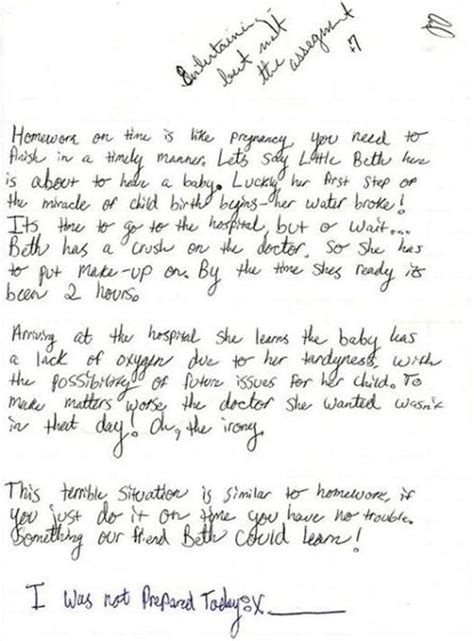 Entertaining,
but not
the assegment
:7
Homework on time is like pregnancy, you need to
finish in a timely manner. Lets say Little Beth here
is about to have a baby. Luckly her first step of
the miracle of child birth begins - her water broke!
Its time to go to the hospital, but o wait...
Beth has a crush on the doctor. So she has
to put make-up on. By the time shes ready its
been 2 hours.
Arriving at the hospital she learns the baby has
a lack of oxygen due to her tardyness, with
the possibility of future issues for her child. To
make matters worse, the doctor she wanted wasn't
in that day! Oh, the irony.
This terrible situation is similar to homework, if
you just do it on time you have no trouble.
Something our friend Beth could learn!
I was not Prepared Today: X